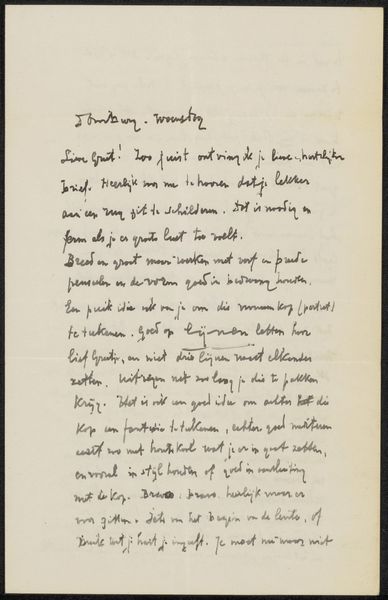 Domburg. Woensdag
Lieve Greet! Zoo juist ontving ik je lieve, hartelijke
brief. Heerlijk voor me te hooren dat je lekker
aan een zeeg zit te schilderen. Dat is noodig en
fijn als je er groote lust toe voelt.
Breed en groot maar werken met verf en breede
penseelen en de vorm goed in bedwang houden.
Een puik idee ook van je om die vrouwenkop (portret)
te teekenen. Goed op lijnen letten hoor
lief Greetje, en niet drie lijnen naast elkander
zetten. Uitvegen net zoo lang je die te pakken
krijgt. Het is ook een goed idee om achter die
kop een fantasie te teekenen, echter goed
eerst wat met houtskool wat je er in gaat zetten,
en vooral in stijl houden of goed in aansluiting
met de kop. Bravo. Bravo. heerlijk maar er
voor zitten. Iets van het begin van de lente, of
denk wat je hart je ingeeft. Je moet nu maar niet